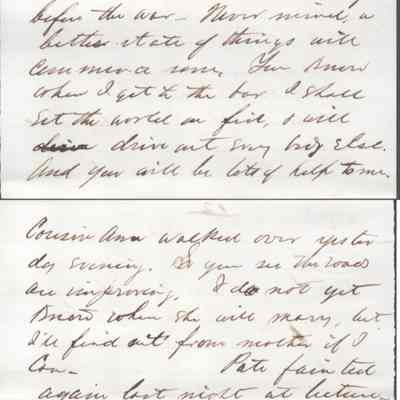 before the war - Never mind, a
better state of things will
commence soon. You know
when I get to the bar I shall
set the world on fire, & will
drive out every body else.
And you will be lots of help to me.
Cousin Ann walked over yester
day evening. So you see the roads
are improving. I do not yet
know when she will marry, but
I'll find out from mother if I
Can- Pate fainted
again last night at lecture